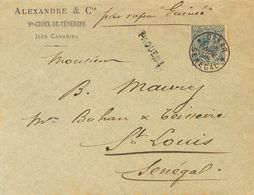 ALEXANDRE & Cie
STE-CROIX-DE-TÉNÉRIFE
ILES CANARIES
par vapeur "Guinée"
PAQUEBOT
DAKAR
SÉNÉGAL
Monsieur
B. Maury
Mon Buhan & Teisseire
St Louis
Sénégal